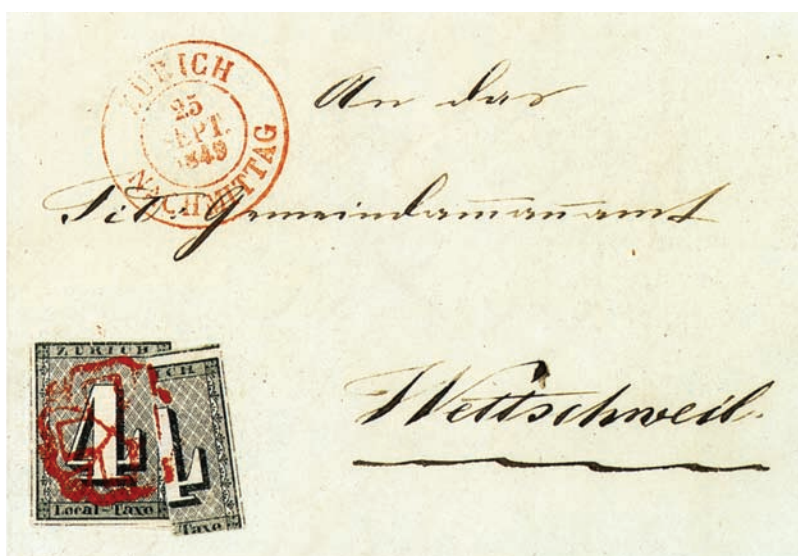 ZÜRICH
25
SEPT.
1849
NACHMITTAG
An das
Tit. Gemeindam̄an̄amt
Wettschweil.
ZÜRICH
4
Local-Taxe
CH
Taxe